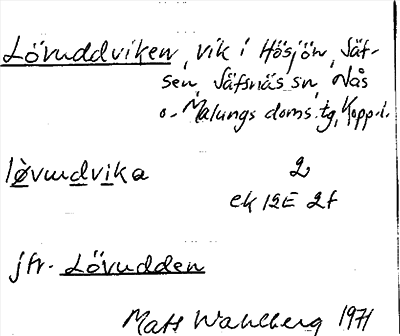 Lövuddviken, vik i Hösjön, Säf-
sen, Säfsnäs sn, Nås
o. Malungs doms.tg, Kopp.l.
lövudvika 2
ek 12E 2f
jfr. Lövudden
Mats Wahlberg 1971